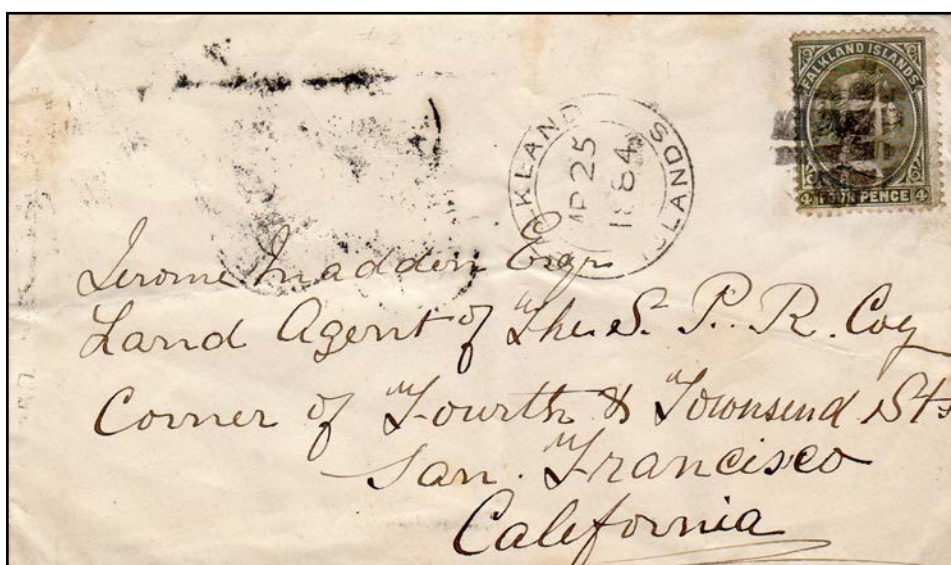 FALKLAND ISLANDS
4 FOUR PENCE 4
LKLAND ISLANDS
MR 25
1884
Jerome Madden Esqr
Land Agent of The S. P. R. Coy
Corner of Fourth & Townsend Sts
San Francisco
California